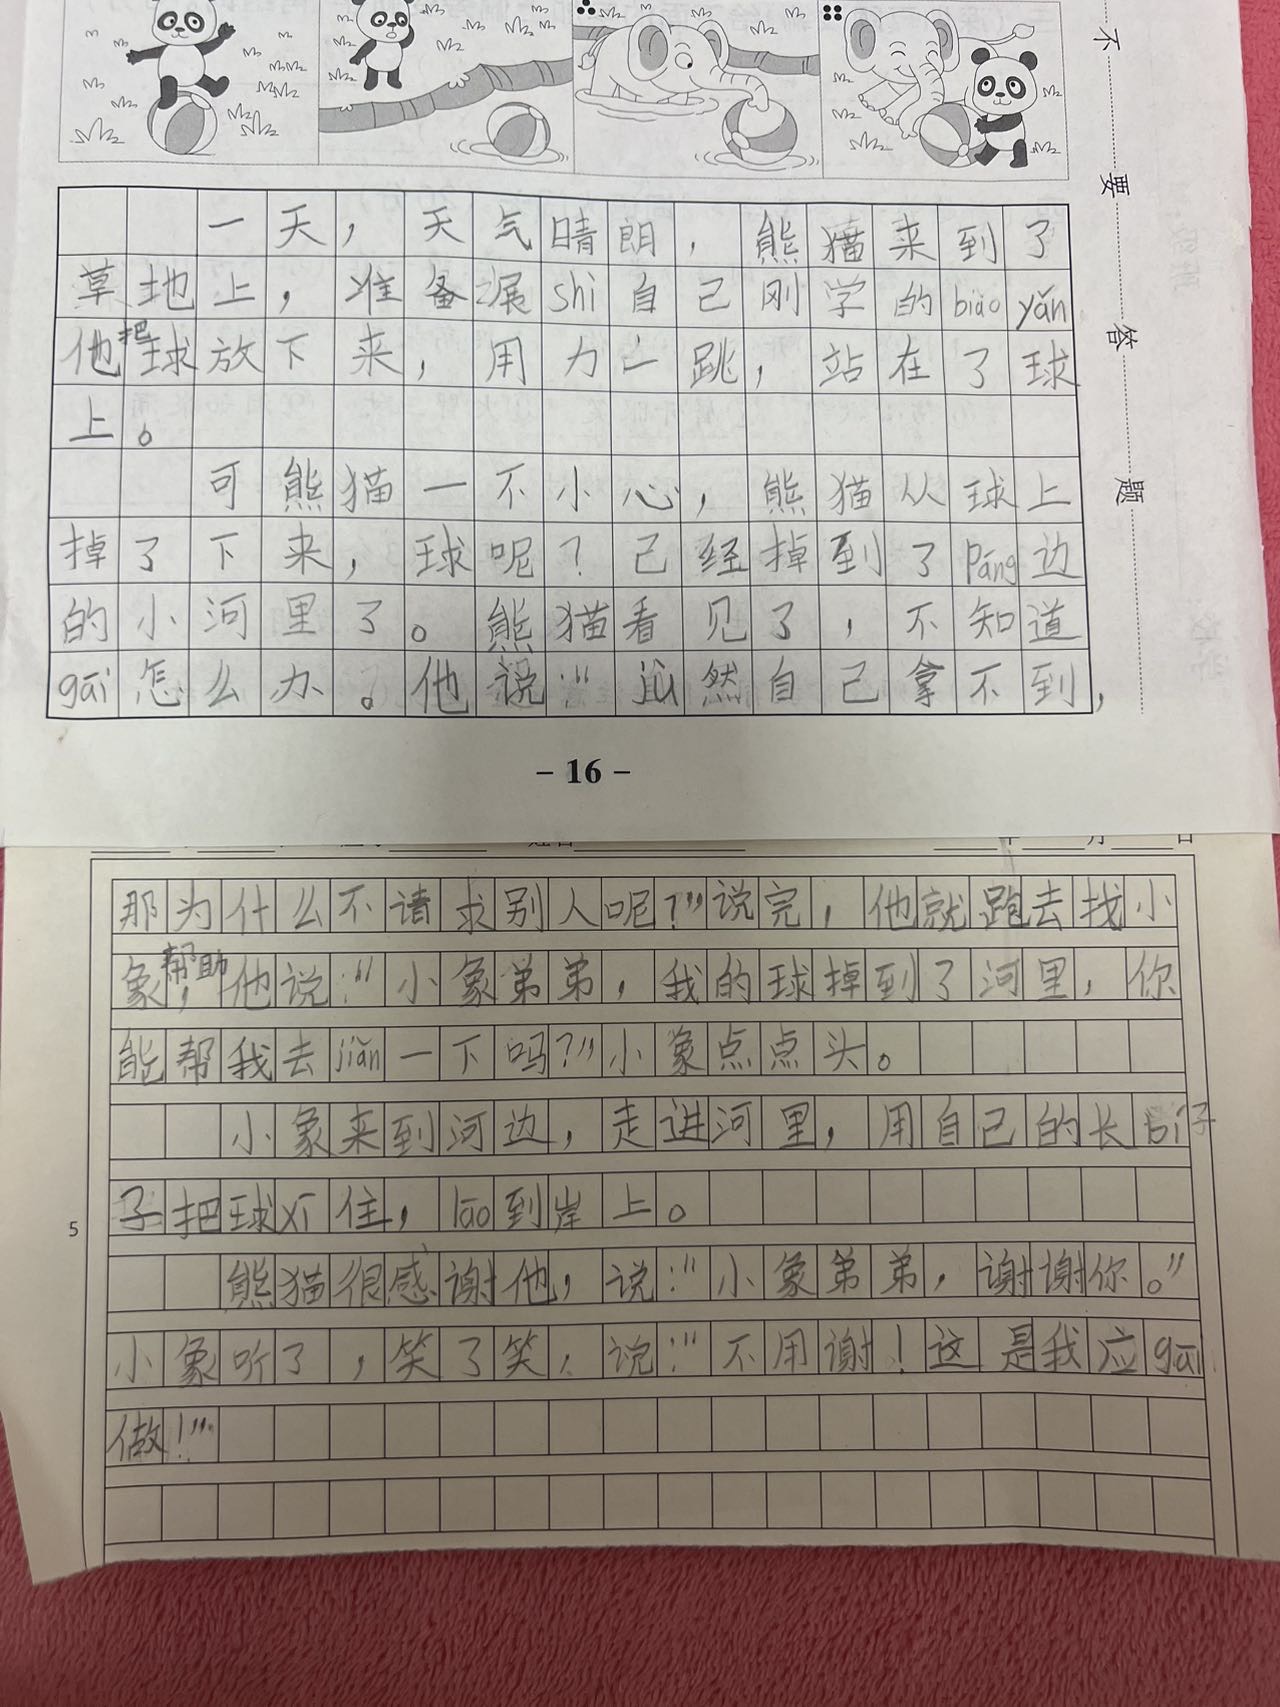 不要答题
一天，天气晴朗，熊猫来到了
草地上，准备展shì自己刚学的biǎo yǎn
他把球放下来，用力一跳，站在了球
上。
可熊猫一不小心，熊猫从球上
掉了下来，球呢？己经掉到了páng边
的小河里了。熊猫看见了，不知道
gāi怎么办。他说：“jū然自己拿不到，
- 16 -
月 日
那为什么不请求别人呢？”说完，他就跑去找小
象帮助，他说：“小象弟弟，我的球掉到了河里，你
能帮我去jiǎn一下吗？”小象点点头。
小象来到河边，走进河里，用自己的长bí子
5 子把球xī住，lāo到岸上。
熊猫很感谢他，说：“小象弟弟，谢谢你。”
小象听了，笑了笑，说：“不用谢！这是我应gāi
做！”